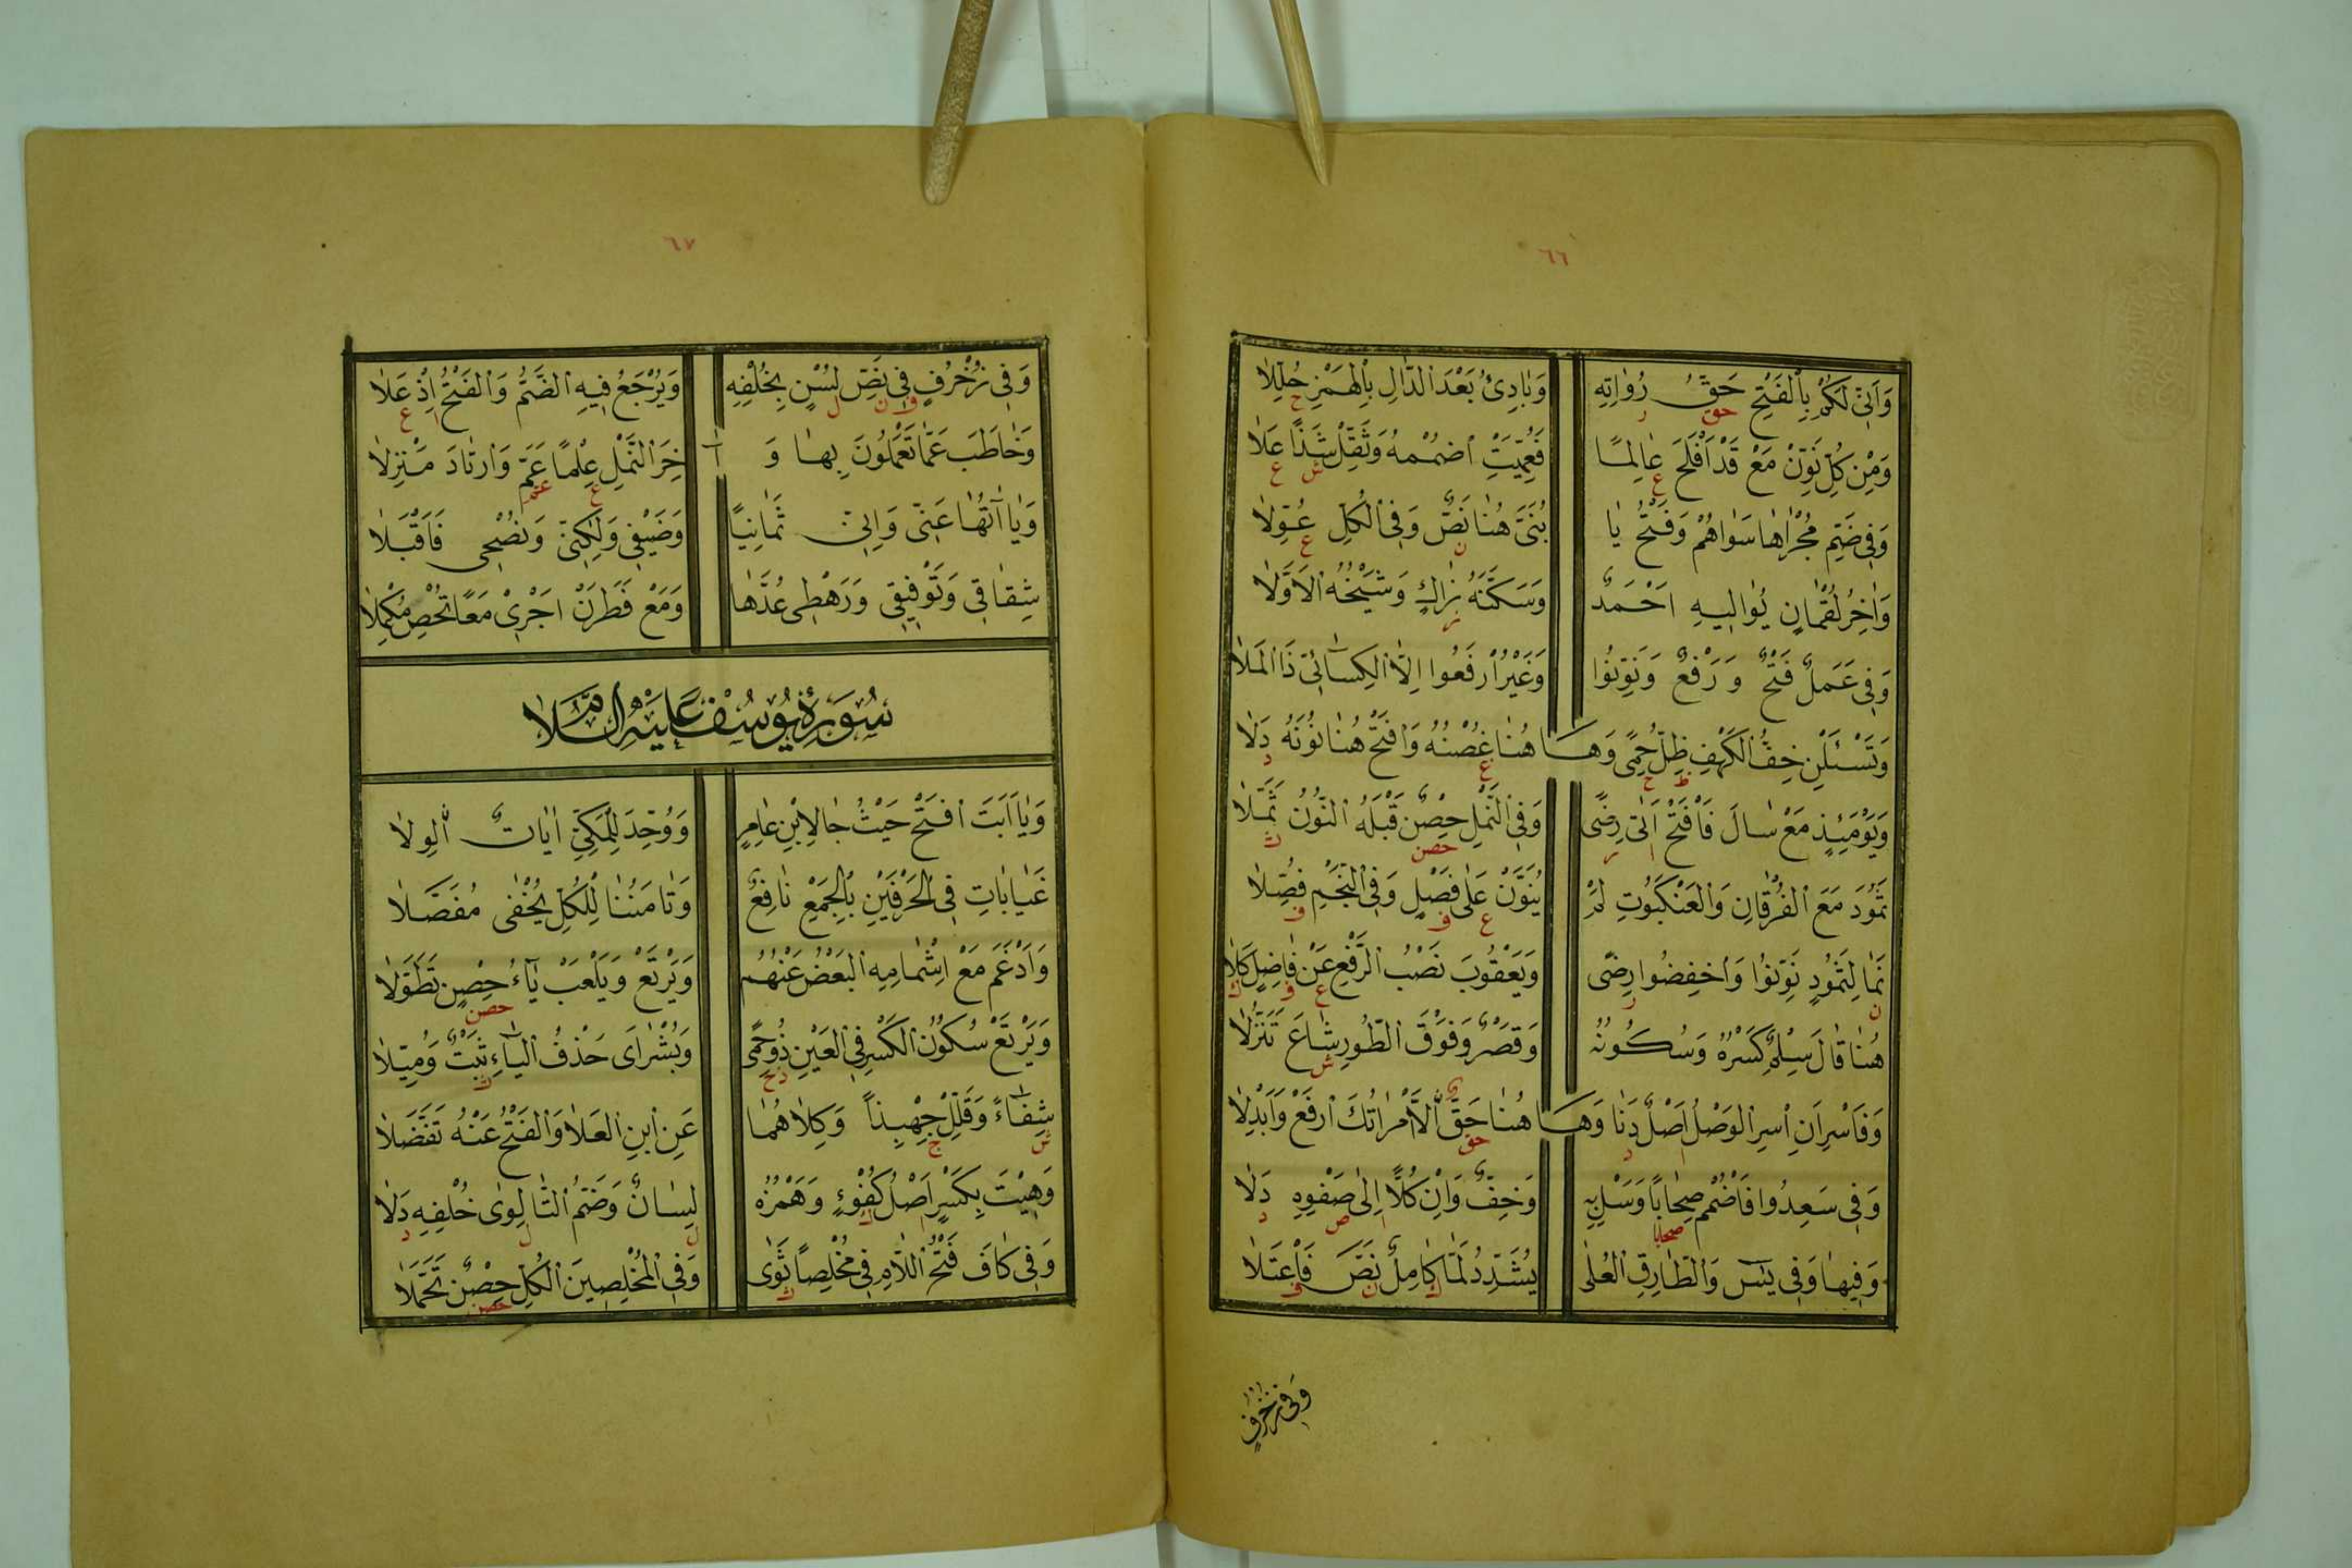 ٦٦
وَاَنِّى لَكُمْ بِالْفَتْحِ حَقُّ رُوَاتِهِ وَبَادِئَ بَعْدَ الدَّالِ بِالْهَمْزِ حُلِّلَا
وَمِنْ كُلِّ نَوِّنْ مَعْ قَدْ اَفْلَحَ عَالِمًا فَعُمِّيَتِ اضْمُمْهُ وَثَقِّلْ شَذًا عَلَا
وَفِى ضَمِّ مُجْرَاهَا سَوَاهُمْ وَفَتْحُ يَا بُنَىَّ هُنَا نَصٌّ وَفِى الْكُلِّ عُوِّلَا
وَاٰخِرُ لُقْمَانٍ يُوَالِيهِ اَحْمَدٌ وَسَكَّنَهُ زَاكٍ وَشَيْخُهُ الْاَوَّلَا
وَفِى عَمَلٌ فَتْحٌ وَرَفْعٌ وَنَوِّنُوا وَغَيْرُ ارْفَعُوا اِلَّا الْكِسَائِىَّ ذَا الْمَلَا
وَتَسْئَلْنِ خِفُّ الْكَهْفِ ظِلُّ حِمًى وَهَا هُنَا غُصْنُهُ وَافْتَحْ هُنَا نُونَهُ دَلَا
وَيَوْمَئِذٍ مَعْ سَالَ فَافْتَحْ اَتَى رِضًى وَفِى النَّمْلِ حِصْنٌ قَبْلَهُ النُّونُ ثَمَّلَا
ثَمُودَ مَعَ الْفُرْقَانِ وَالْعَنْكَبُوتِ لَمْ يُنَوَّنْ عَلٰى فَصْلٍ وَفِى النَّجْمِ فُصِّلَا
نَمَا لِثَمُودٍ نَوِّنُوا وَاخْفِضُوا رِضًى وَيَعْقُوبَ نَصْبُ الرَّفْعِ عَنْ فَاضِلٍ كَلَا
هُنَا قَالَ سِلْمٌ كَسْرُهُ وَسُكُونُهُ وَقَصْرٌ وَفَوْقَ الطُّورِ شَاعَ تَنَزُّلَا
وَفَاسْرِ اَنِ اسْرِ الْوَصْلُ اَصْلٌ دَنَا وَهَا هُنَا حَقٌّ الَّا امْرَاتُكَ ارْفَعْ وَاَبْدِلَا
وَفِى سَعِدُوا فَاضْمُمْ صِحَابًا وَسَلْ بِهِ وَخِفٌّ وَاِنْ كُلًّا اِلٰى صَفْوِهِ دَلَا
وَفِيهَا وَفِى يٰسٓ وَالطَّارِقِ الْعُلٰى يُشَدِّدُ لَمَّا كَامِلٌ نَصَّ فَاعْتَلَا
وَفِى زُخْرُفٍ
٦٧
وَفِى زُخْرُفٍ فِى نَصِّ لُسْنٍ بِخُلْفِهِ وَيُرْجَعُ فِيهِ الضَّمُّ وَالْفَتْحُ اِذْ عَلَا
وَخَاطَبَ عَمَّا تَعْمَلُونَ بِهَا وَ اٰ خِرَ النَّمْلِ عِلْمًا عَمَّ وَارْتَادَ مَنْزِلَا
وَيَا اٰتُهَا عَنِّى وَاِنِّى ثَمَانِيًا وَضَيْفِى وَلٰكِنِّى وَنُصْحِى فَاقْبَلَا
شِقَاقِى وَتَوْفِيقِى وَرَهْطِى عُدَّهَا وَمَعْ فَطَرَنْ اَجْرِىْ مَعًا تُحْصِ مُكْمِلَا
سُورَةُ يُوسُفَ عَلَيْهِ السَّلَام
وَيَا اَبَتَ افْتَحْ حَيْثُ جَا لِابْنِ عَامِرٍ وَوُحِّدَ لِلْمَكِّىِّ اٰيَاتٌ الْوِلَا
غَيَابَاتِ فِى الْحَرْفَيْنِ بِالْجَمْعِ نَافِعٌ وَتَامَنُنَا لِلْكُلِّ يُخْفٰى مُفَصَّلَا
وَاَدْغَمَ مَعْ اِشْمَامِهِ الْبَعْضُ عَنْهُمُ وَيَرْتَعْ وَيَلْعَبْ يَاءُ حِصْنٍ تَطَوَّلَا
وَيَرْتَعْ سُكُونُ الْكَسْرِ فِى الْعَيْنِ ذُو حِمًى وَبُشْرَاىَ حَذْفُ الْيَاءِ ثَبْتٌ وَمُيِّلَا
شِفَاءً وَقَلِّلْ جِهْبِذًا وَكِلَاهُمَا عَنِ ابْنِ الْعَلَا وَالْفَتْحُ عَنْهُ تَفَضَّلَا
وَهِيْتَ بِكَسْرٍ اَصْلُ كُفْوءٍ وَهَمْزُهُ لِسَانٌ وَضَمُّ التَّا لِوٰى خُلْفِهِ دَلَا
وَفِى كَافَ فَتْحُ اللَّامِ فِى مُخْلِصًا ثَوٰى وَفِى الْمُخْلِصِينَ الْكُلِّ حِصْنٌ تَجَمَّلَا